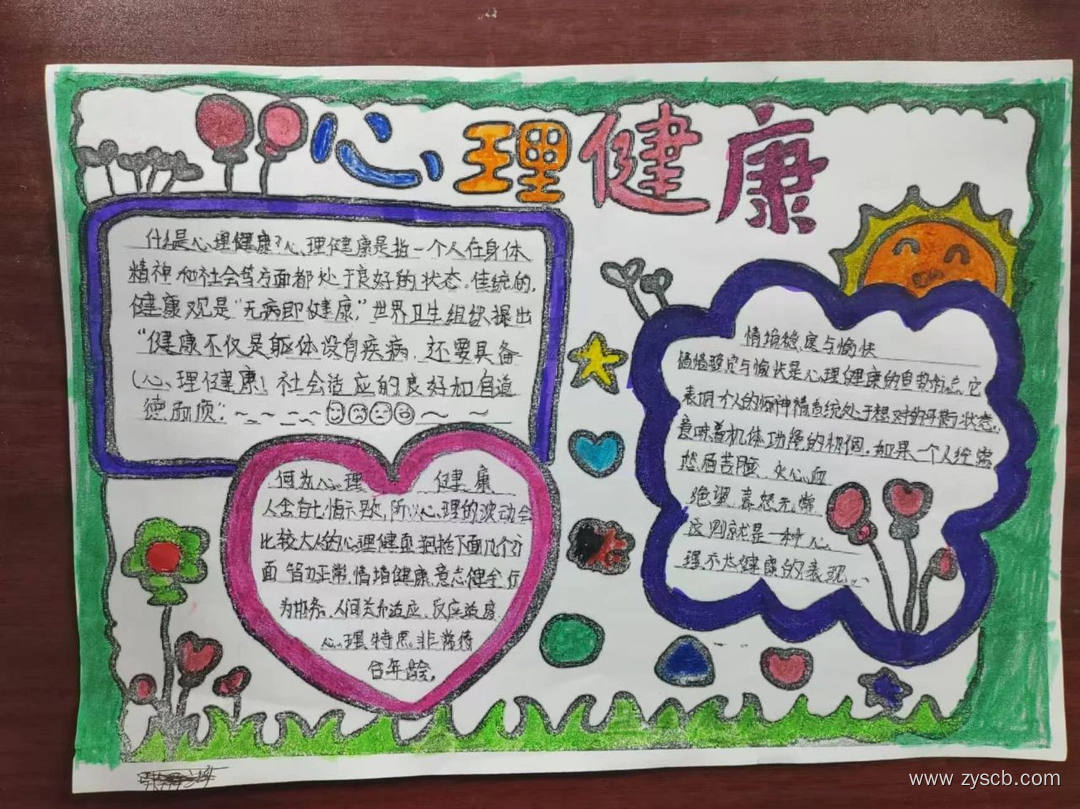 心理健康
什么是心理健康?心理健康是指一个人在身体
精神和社会等方面都处于良好的状态。传统的,
健康观是"无病即健康,"世界卫生组织提出
"健康不仅是躯体没有疾病,还要具备
心理健康!社会适应的良好和自道
德
何为心理健康
人会有七情六欲,所以心理的波动会
比较大人的心理健康 下面几个方
面 智力正常,情绪健康,意志健全,行
为 人间关 适应,反应适度,
心理特 非常符
合年龄。
情绪稳定与愉快
情绪稳定与愉快是心理健康的 它
表明个人的 神 情 统处于相对的平衡状态。
意味着机体功 的协调。如果一个人经常
愁眉苦脸 心
绝望 喜怒无常
这则就是一种心
理不太健康的表现。
www.zyscb.com